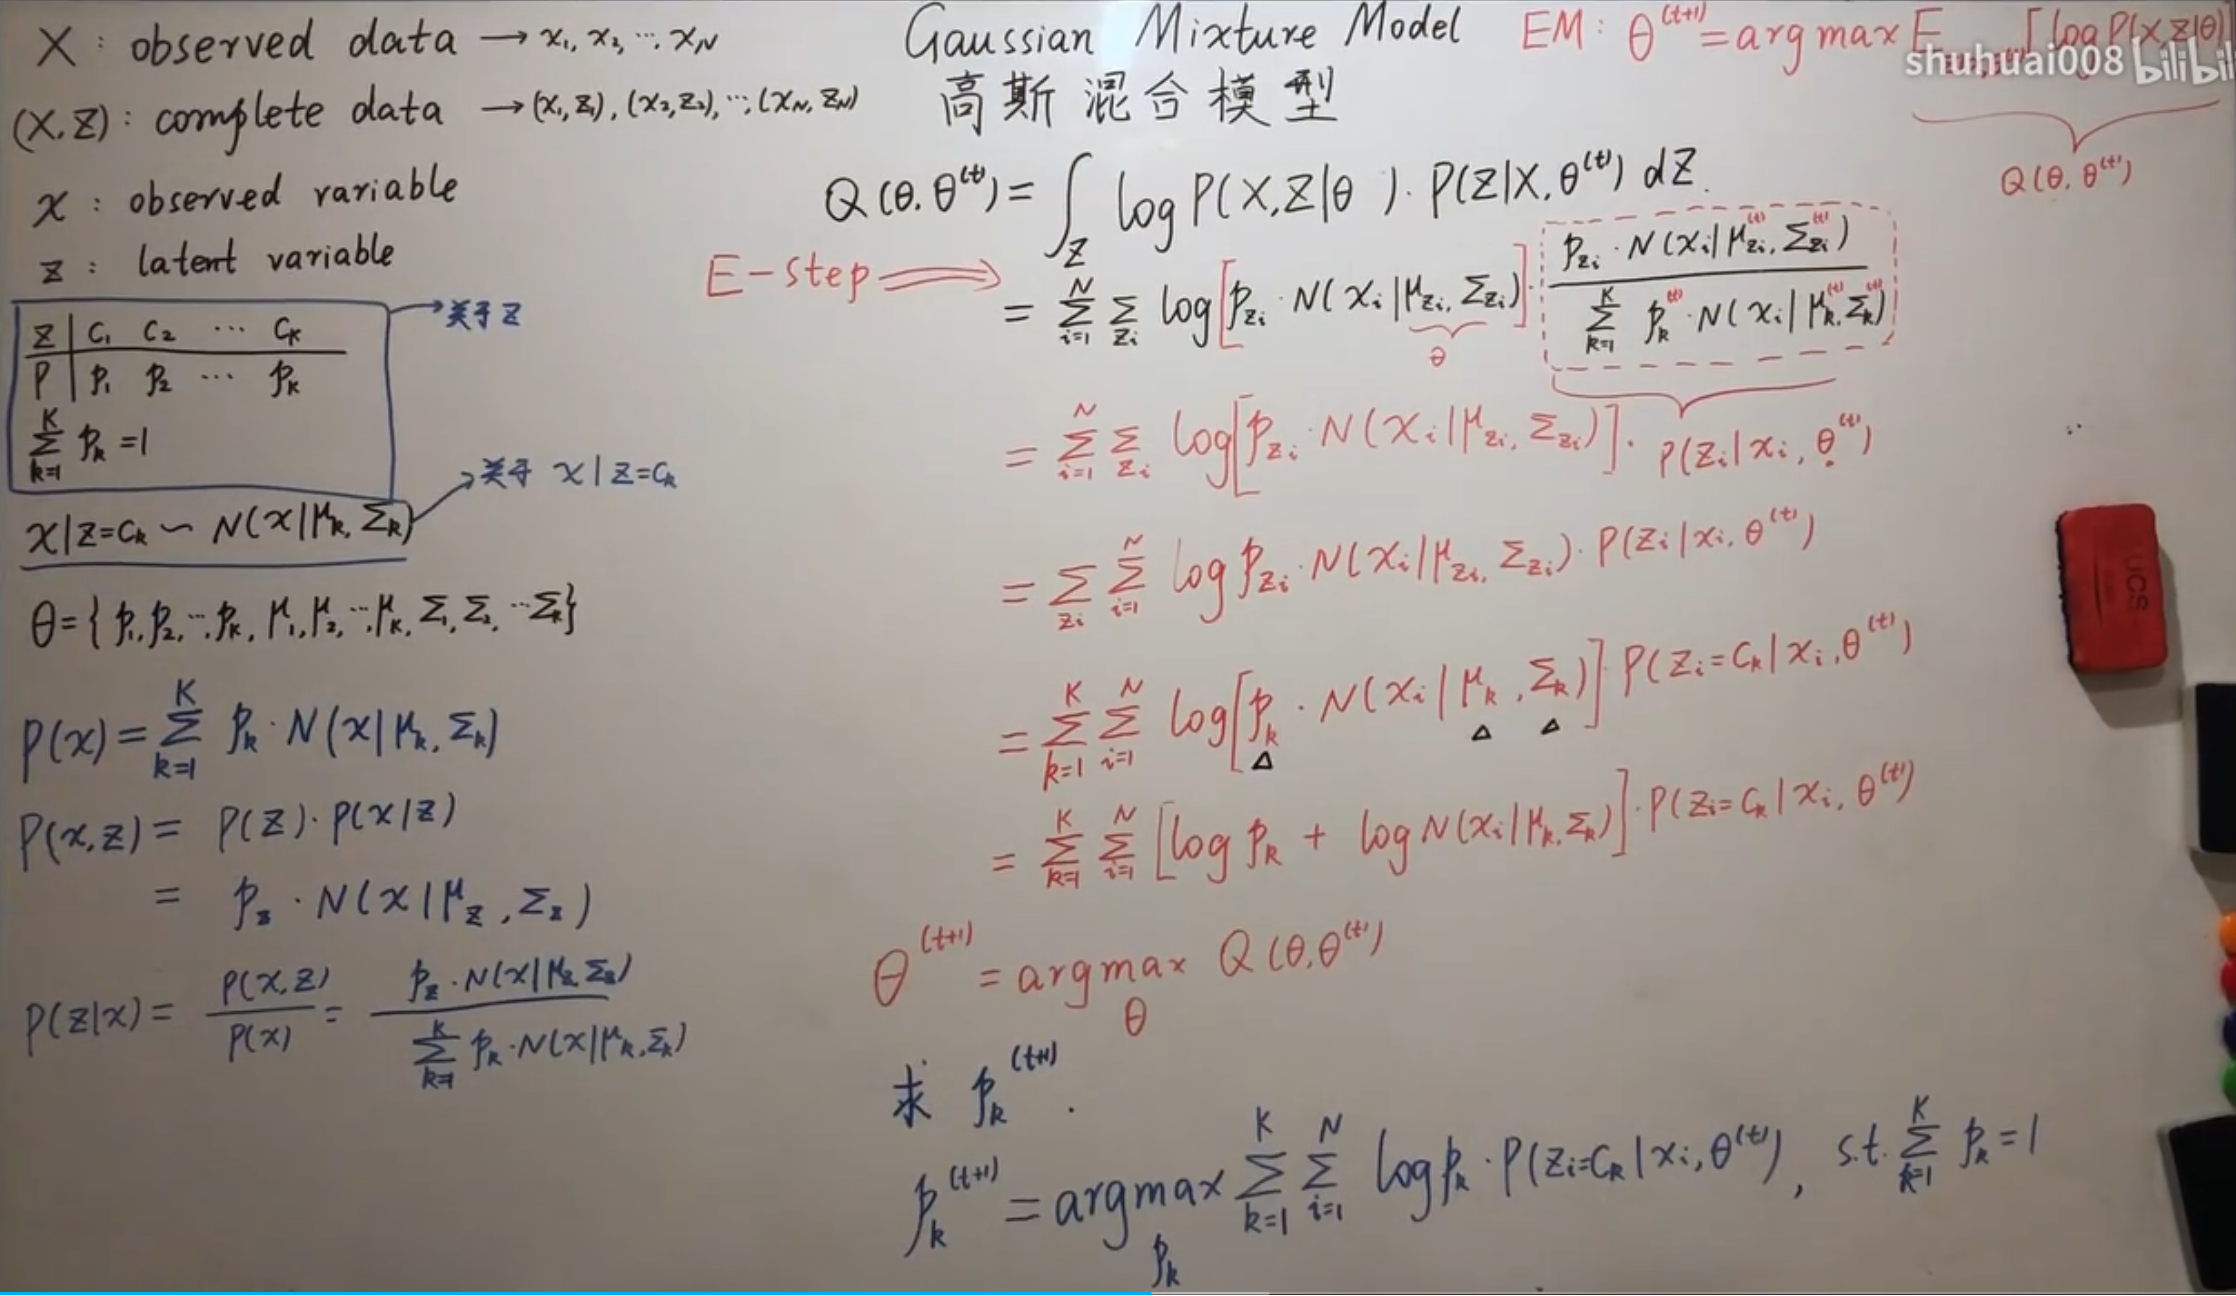 X : observed data → x₁, x₂, ⋯ x_N
(X, Z) : complete data → (x₁, z₁), (x₂, z₂), ⋯, (x_N, z_N)
x : observed variable
z : latent variable
→ 关于 z
z | C₁ C₂ ⋯ C_k
p | p₁ p₂ ⋯ p_k
∑_{k=1}^{K} p_k = 1
→ 关于 x | z = C_k
x | z = C_k ~ N(x | μ_k, Σ_k)
θ = { p₁, p₂, ⋯, p_k, μ₁, μ₂, ⋯, μ_k, Σ₁, Σ₂, ⋯ Σ_k }
P(x) = ∑_{k=1}^{K} p_k · N(x | μ_k, Σ_k)
P(x, z) = P(z) · P(x | z)
= p_z · N(x | μ_z, Σ_z)
P(z | x) = P(x, z) / P(x) = p_z · N(x | μ_z, Σ_z) / ∑_{k=1}^{K} p_k · N(x | μ_k, Σ_k)
Gaussian Mixture Model
高斯混合模型
EM : θ^(t+1) = arg max E [log P(X, Z | θ)]
shuhuai008 bilibili
Q(θ, θ^(t))
Q(θ, θ^(t)) = ∫_Z log P(X, Z | θ) · P(Z | X, θ^(t)) dZ.
E-step ⟹ = ∑_{i=1}^{N} ∑_{z_i} log [p_{z_i} · N(x_i | μ_{z_i}, Σ_{z_i})] · p_{z_i} · N(x_i | μ_{z_i}^(t), Σ_{z_i}^(t)) / ∑_{k=1}^{K} p_k^(t) · N(x_i | μ_k^(t), Σ_k^(t))
θ
= ∑_{i=1}^{N} ∑_{z_i} log [p_{z_i} · N(x_i | μ_{z_i}, Σ_{z_i})] · P(z_i | x_i, θ^(t))
= ∑_{z_i} ∑_{i=1}^{N} log p_{z_i} · N(x_i | μ_{z_i}, Σ_{z_i}) · P(z_i | x_i, θ^(t))
= ∑_{k=1}^{K} ∑_{i=1}^{N} log [p_k · N(x_i | μ_k, Σ_k)] · P(z_i = C_k | x_i, θ^(t))
△ △ △
= ∑_{k=1}^{K} ∑_{i=1}^{N} [log p_k + log N(x_i | μ_k, Σ_k)] · P(z_i = C_k | x_i, θ^(t))
θ^(t+1) = arg max_θ Q(θ, θ^(t))
求 p_k^(t+1) .
p_k^(t+1) = arg max_{p_k} ∑_{k=1}^{K} ∑_{i=1}^{N} log p_k · P(z_i = C_k | x_i, θ^(t)) , s.t. ∑_{k=1}^{K} p_k = 1
UCS